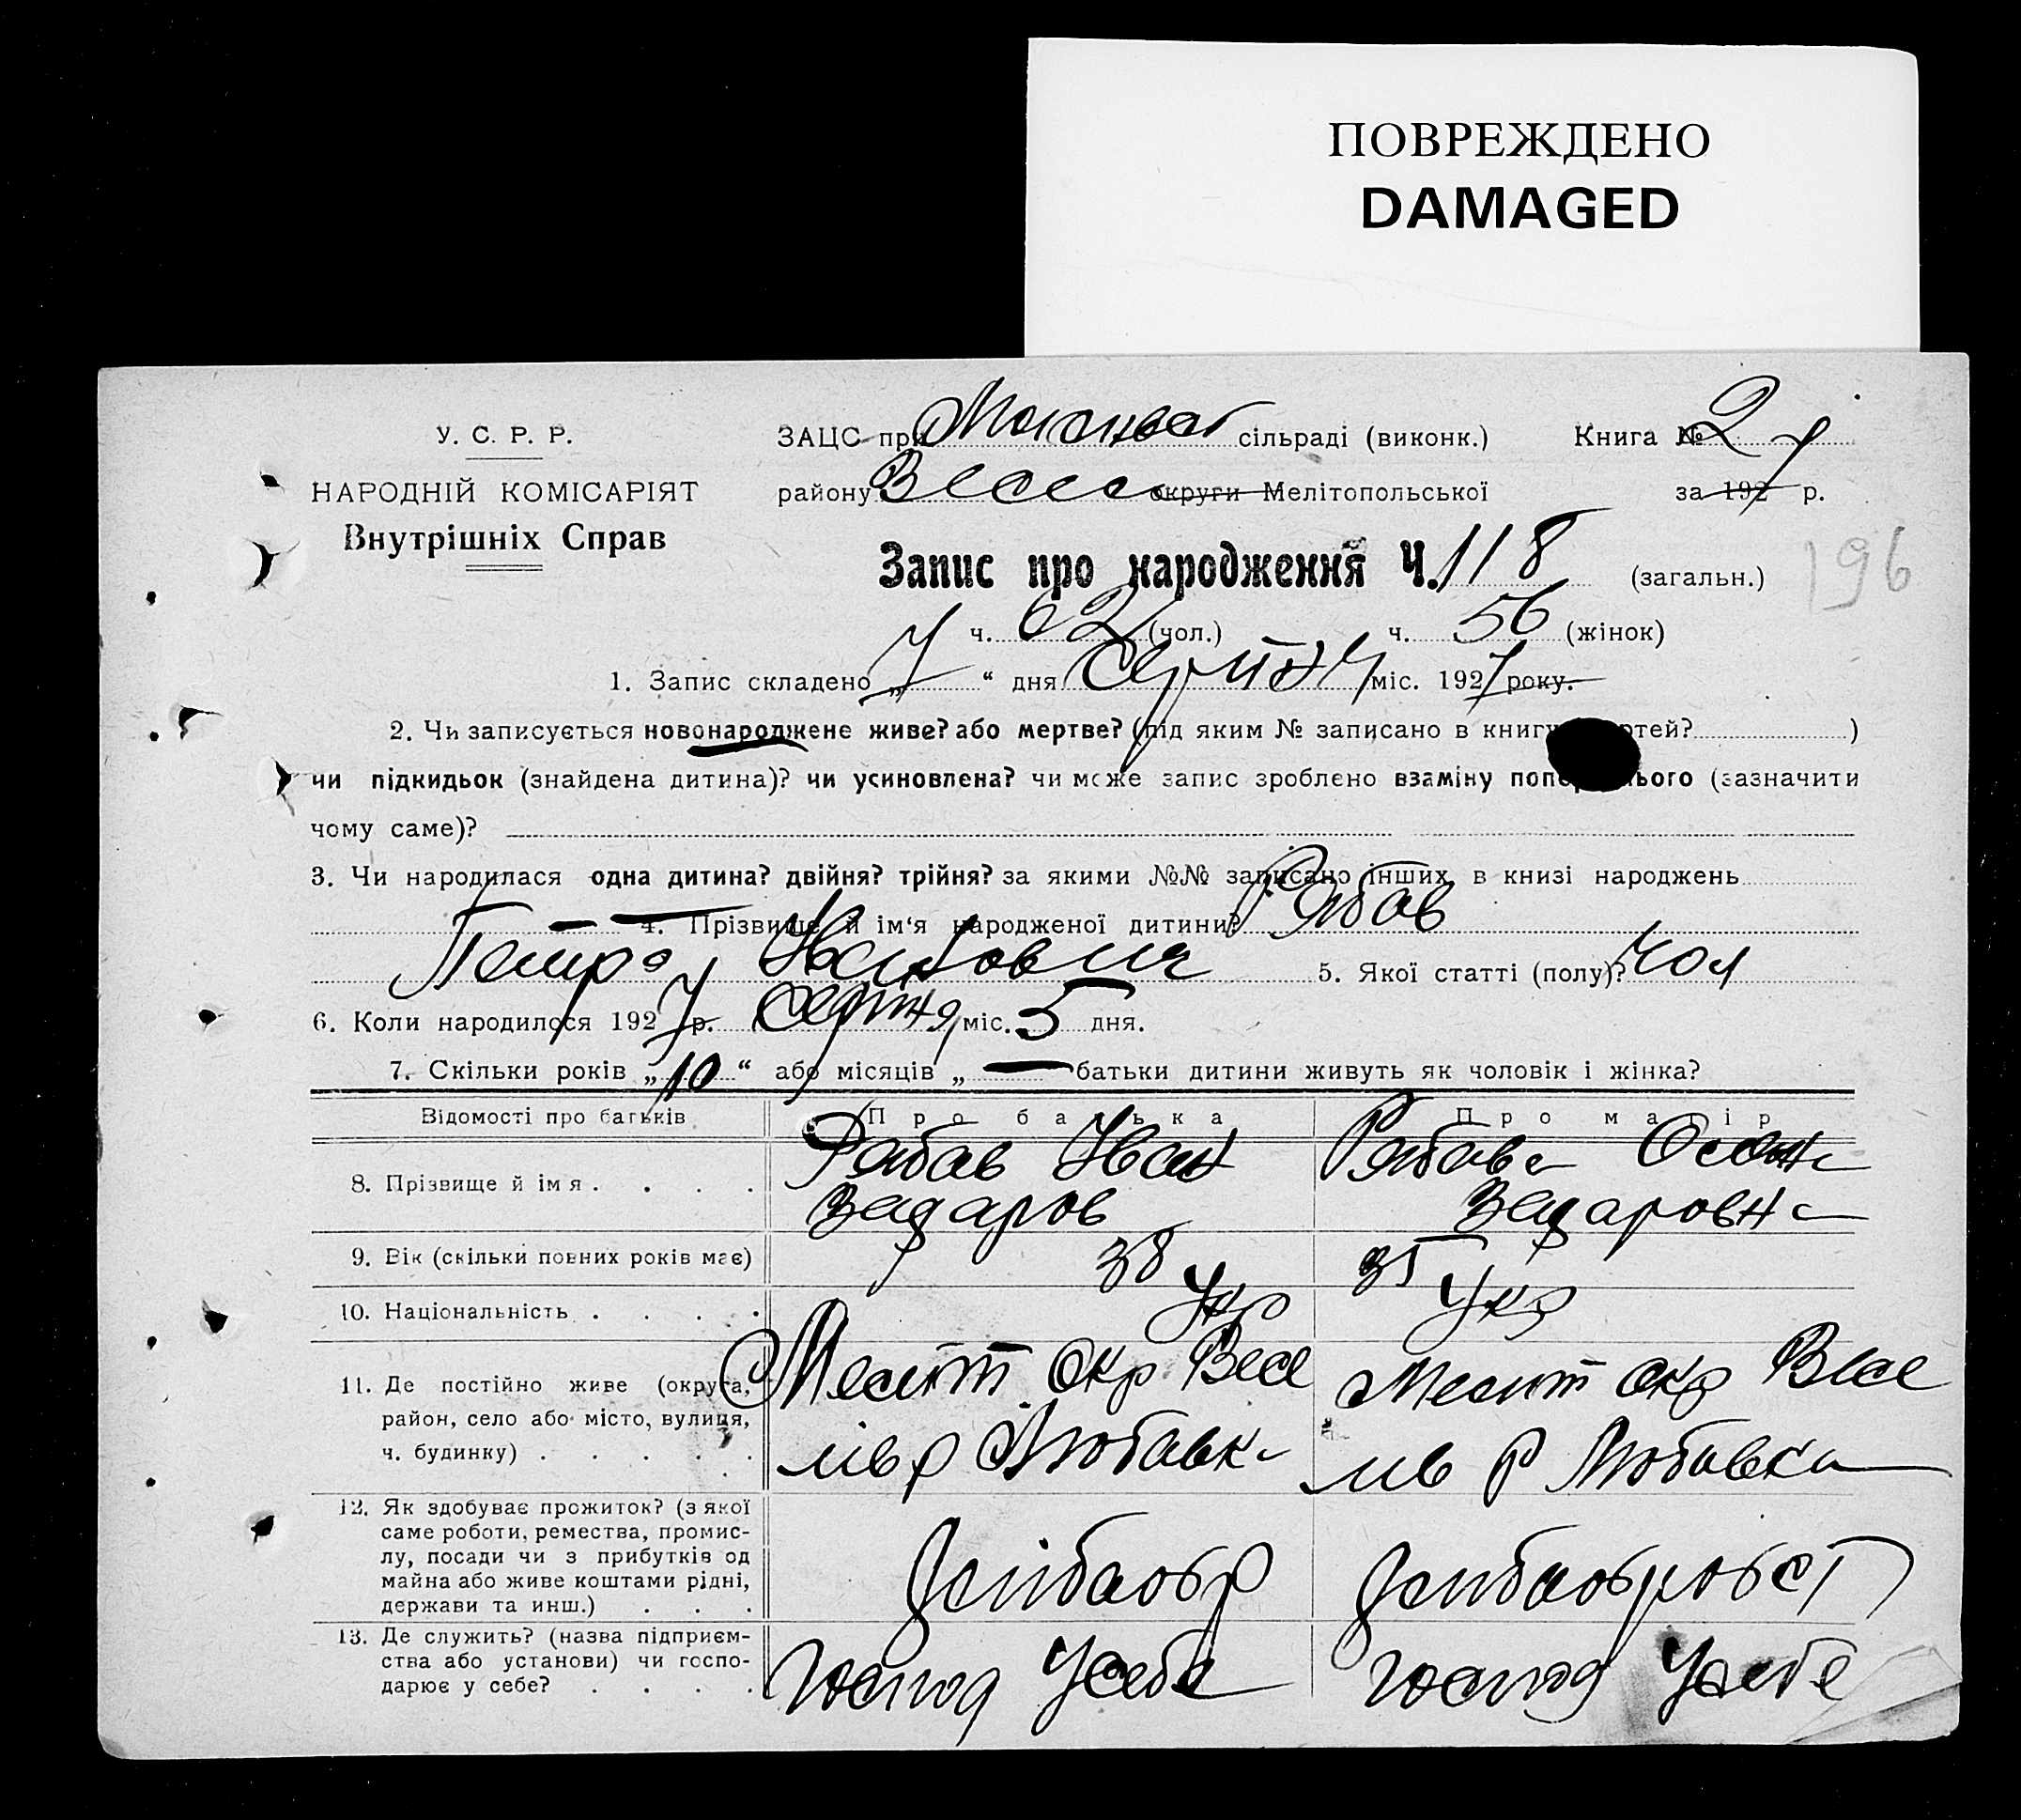 ПОВРЕЖДЕНО
DAMAGED
У. С. Р. Р.
НАРОДНІЙ КОМІСАРІЯТ
Внутрішніх Справ
ЗАЦС при сільраді (виконк.) Книга № 2
району Весел округи Мелітопольської за 1927 р.
Запис про народження Ч. 118 (загальн.)
196
ч. 62 (чол.) ч. 56 (жінок)
1. Запис складено „ 7 “ дня Серпня міс. 1927 року.
2. Чи записується новонароджене живе? або мертве? (під яким № записано в книгу )
чи підкидьок (знайдена дитина)? чи усиновлена? чи може запис зроблено взаміну (зазначити
чому саме)?
3. Чи народилася одна дитина? двійня? трійня? за якими №№ записано інших в книзі народжень
4. Прізвище й ім‘я народженої дитини? Рябов
Петро Иванович 5. Якої статті (полу)? Чол
6. Коли народилося 1927 р. Серпня міс. 5 дня.
7. Скільки років „ 10 “ або місяців „ — батьки дитини живуть як чоловік і жінка?
Відомості про батьків Про батька Про матір
8. Прізвище й імя . . . . Рябов Иван Рябова
9. Вік (скільки повних років має) 38 35
10. Національність . . . . Укр Укр
11. Де постійно живе (округа, Мелит Окр Весе Мелит окр Весе
район, село або місто, вулиця,
ч. будинку) . . . . . лів р Любовка лів Р Любовка
12. Як здобуває прожиток? (з якої
саме роботи, ремества, промис-
лу, посади чи з прибутків од
майна або живе коштами рідні,
держави та инш.) . . .
13. Де служить? (назва підприєм-
ства або установи) чи госпо-
дарює у себе? . . . . Господ Усебе Господ Усебе